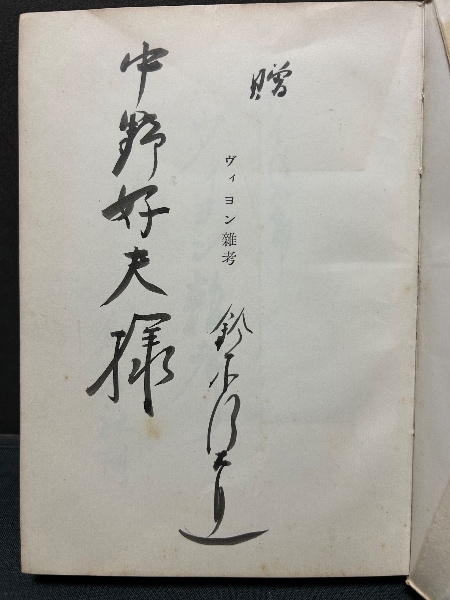 贈
ヴィヨン雜考
鈴木信太郎
中野好夫様